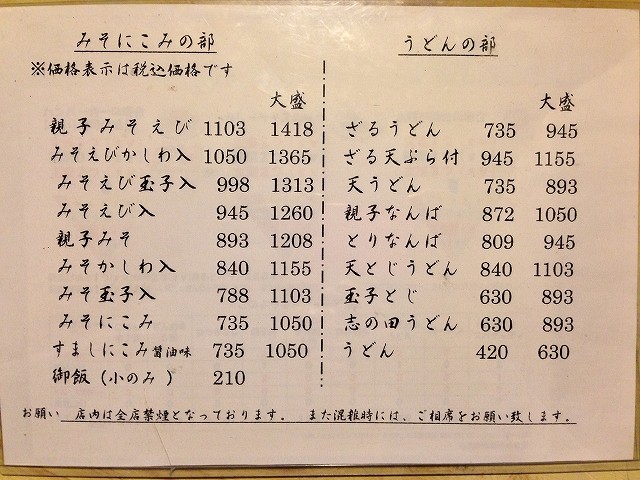 みそにこみの部
※価格表示は税込価格です
大盛
親子みそえび 1103 1418
みそえびかしわ入 1050 1365
みそえび玉子入 998 1313
みそえび入 945 1260
親子みそ 893 1208
みそかしわ入 840 1155
みそ玉子入 788 1103
みそにこみ 735 1050
すましにこみ 醤油味 735 1050
御飯(小のみ) 210
うどんの部
大盛
ざるうどん 735 945
ざる天ぷら付 945 1155
天うどん 735 893
親子なんば 872 1050
とりなんば 809 945
天とじうどん 840 1103
玉子とじ 630 893
志の田うどん 630 893
うどん 420 630
お願い 店内は全店禁煙となっております。 また混雑時には、ご相席をお願い致します。